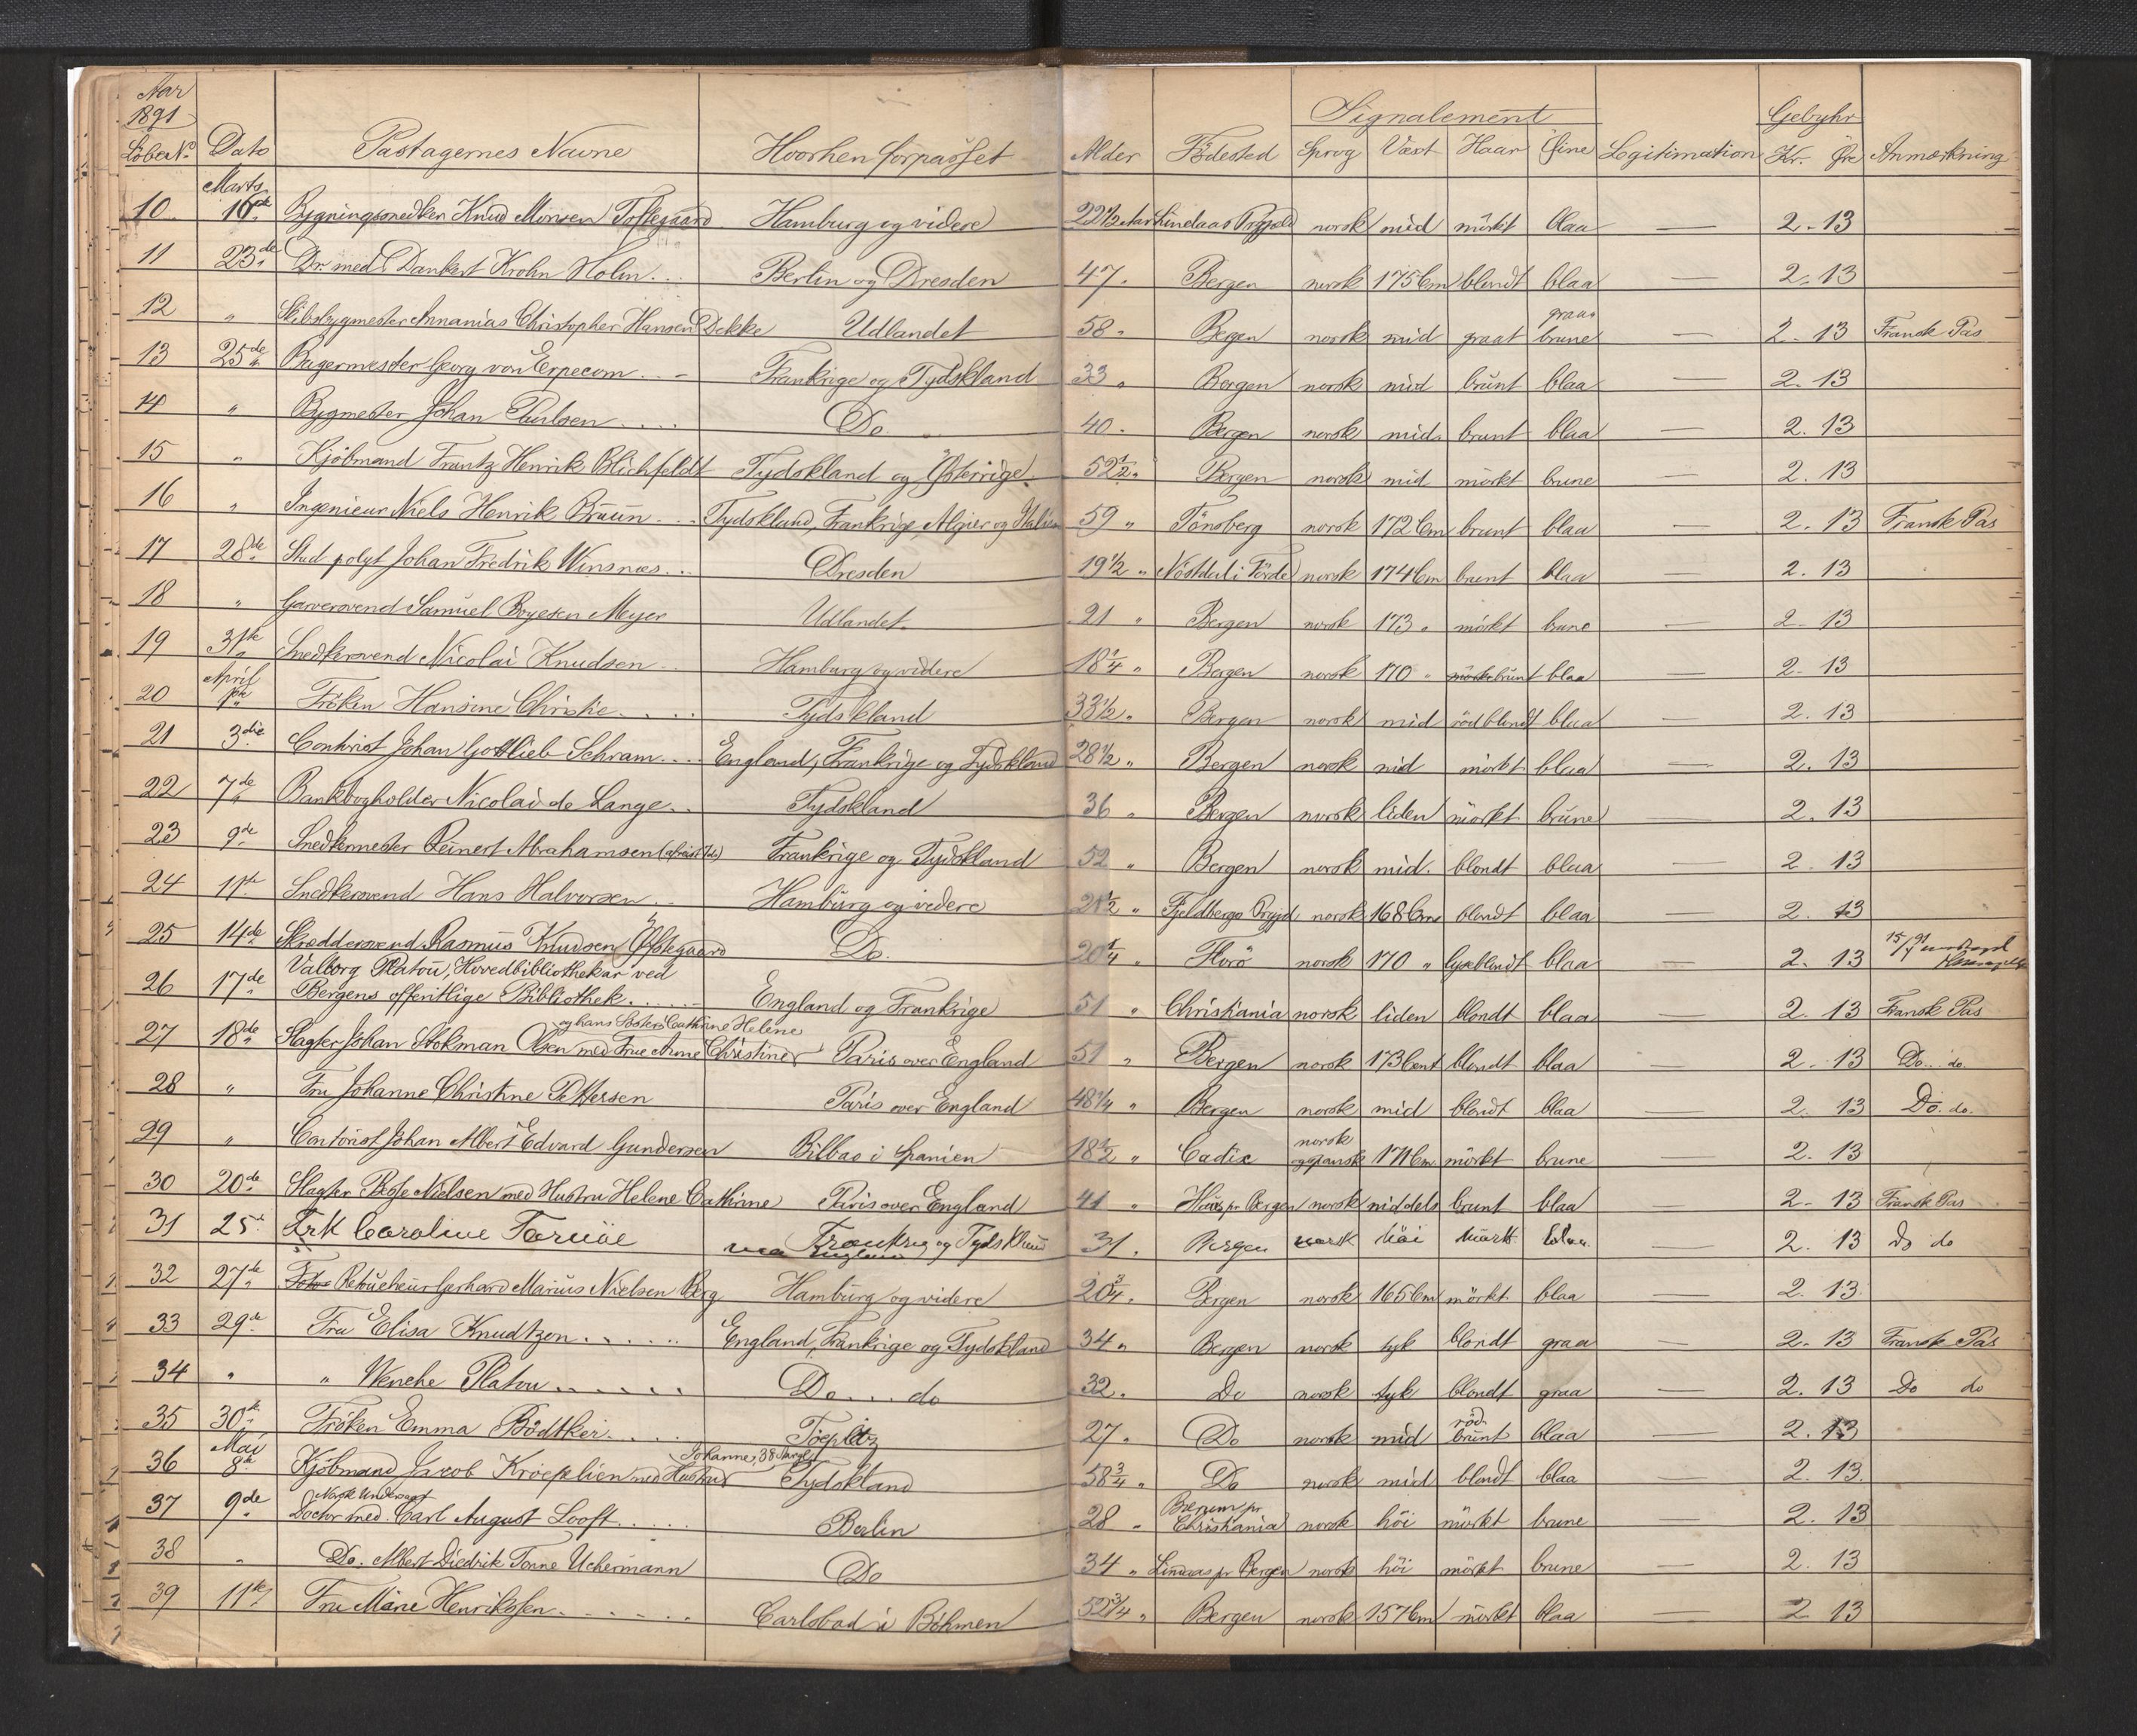 Aar
1891
Signalement Gebyhr
Löbe No. Dato Pastagernes Navne Hvorhen forpasset Alder Födested Sprog Væxt Haar Öine Legitimation Kr. Öre Anmærkning
Marts
10 16de Bygningssnedker Knud Monsen Toftegaard Hamburg og videre 22 1/2 Aar Lindaas Prgjeld norsk mid mörkt blaa — 2. 13
11 23de Dr. med. Dankert Krohn Holm Berlin og Dresden 47 " Bergen norsk 175 Cm blondt blaa — 2. 13
graa
12 " Skibsbygmester Annanias Christopher Hansen Dekke Udlandet 58 " Bergen norsk mid graat brune — 2. 13 Fransk Pas
13 25de Bagermester Georg von Erpecom Frankrige og Tydskland 33 " Bergen norsk mid brunt blaa — 2. 13
14 " Bygmester Johan Poulsen Do. 40 " Bergen norsk mid. brunt blaa — 2. 13
15 " Kjöbmand Frantz Henrik Blichfeldt Tydskland og Østerrige 52 1/2 " Bergen norsk mid mörkt brune — 2. 13
16 " Ingenieur Niels Henrik Bruun Tydskland, Frankrige, Algier og Italien 59 " Tönsberg norsk 172 Cm brunt blaa — 2. 13 Fransk Pas
17 28de Stud polyt Johan Fredrik Winsnæs Dresden 19 1/2 " Nöstdal i Förde norsk 174 Cm brunt blaa — 2. 13
18 " Garversvend Samuel Boyesen Meyer Udlandet. 21 " Bergen norsk 173 " mörkt brune — 2. 13
19 31te Snedkersvend Nicolai Knudsen Hamburg og videre 18 1/4 " Bergen norsk 170 " mörkebrunt blaa — 2. 13
April
20 1ste Fröken Hansine Christie Tydskland 33 1/2 " Bergen norsk mid rödblondt blaa — 2. 13
21 3die Contorist Johan Gottlieb Schram England, Frankrige og Tydskland 28 1/2 " Bergen norsk mid mörkt blaa — 2. 13
22 7de Bankbogholder Nicolai de Lange Tydskland 36 " Bergen norsk liden mörkt brune — 2. 13
23 9de Snedkermester Reinert Abrahamsen Frankrige og Tydskland 52 " Bergen norsk mid. blondt blaa — 2. 13
24 11te Snedkersvend Hans Halvorsen Hamburg og videre 21 1/2 " Fjeldbergs Prgjd norsk 168 Cm blondt blaa — 2. 13
25 14de Skræddersvend Rasmus Knudsen Øfstegaard Do. 20 1/4 " Florö norsk 170 " lyseblondt blaa — 2. 13 15/4 91
Valborg Platou, Hovedbibliothekar ved
26 17de Bergens offentlige Bibliothek England og Frankrige 51 " Christiania norsk liden blondt blaa — 2. 13 Fransk Pas
og hans Söster Cathrine Helene
27 18de Slagter Johan Stokman Olsen med Frue Anne Christine Paris over England 51 " Bergen norsk 173 Cent blondt blaa — 2. 13 Do. do.
28 " Fru Johanne Christine Pettersen Paris over England 48 1/4 " Bergen norsk mid blondt blaa — 2. 13 Do. do.
norsk
29 " Contorist Johan Albert Edvard Gundersen Bilbao i Spanien 18 1/2 " Cadix og spansk 171 Cm. mörkt brune — 2. 13
30 20de Slagter Börge Nielsen med Hustru Helene Cathrine Paris over England 41 " Haus pr Bergen norsk middels brunt blaa — 2. 13 Fransk Pas
31 25 Frk Caroline Farüöe Frankrig og Tydskland 31. Bergen norsk höi mörk blaa — 2. 13 do do
via England
32 27de Retoucheur Gerhard Marius Nielsen Berg Hamburg og videre 20 3/4 " Bergen norsk 165 Cm mörkt blaa — 2. 13.
33 29de Fru Elisa Knudtzen England, Frankrige og Tydskland 34 " Bergen norsk tyk blondt graa — 2. 13 Fransk Pas
34 " " Wenche Platou Do do 32. Do norsk tyk blondt graa — 2. 13 Do do
röd
35 30te Fröken Emma Bödtker Toeplitz 27 " Do norsk mid brunt blaa — 2. 13
Mai Johanne, 38 Aar gl
36 8de Kjöbmand Jacob Kroepelien med Hustru Tydskland 58 3/4 " Do norsk mid blondt blaa — 2. 13.
Norsk Undersaat Bærum pr
37 9de Doctor med. Carl August Looft Berlin 28 " Christiania norsk höi mörkt brune — 2. 13
38 " Do. Albert Diedrik Tonne Uchermann Do 34 " Lindaas pr Bergen norsk höi mörkt brune — 2. 13
39 11te Fru Marie Henrikssen Carlsbad i Böhmen 52 3/4 " Bergen norsk 157 Cm mörkt blaa — 2 13